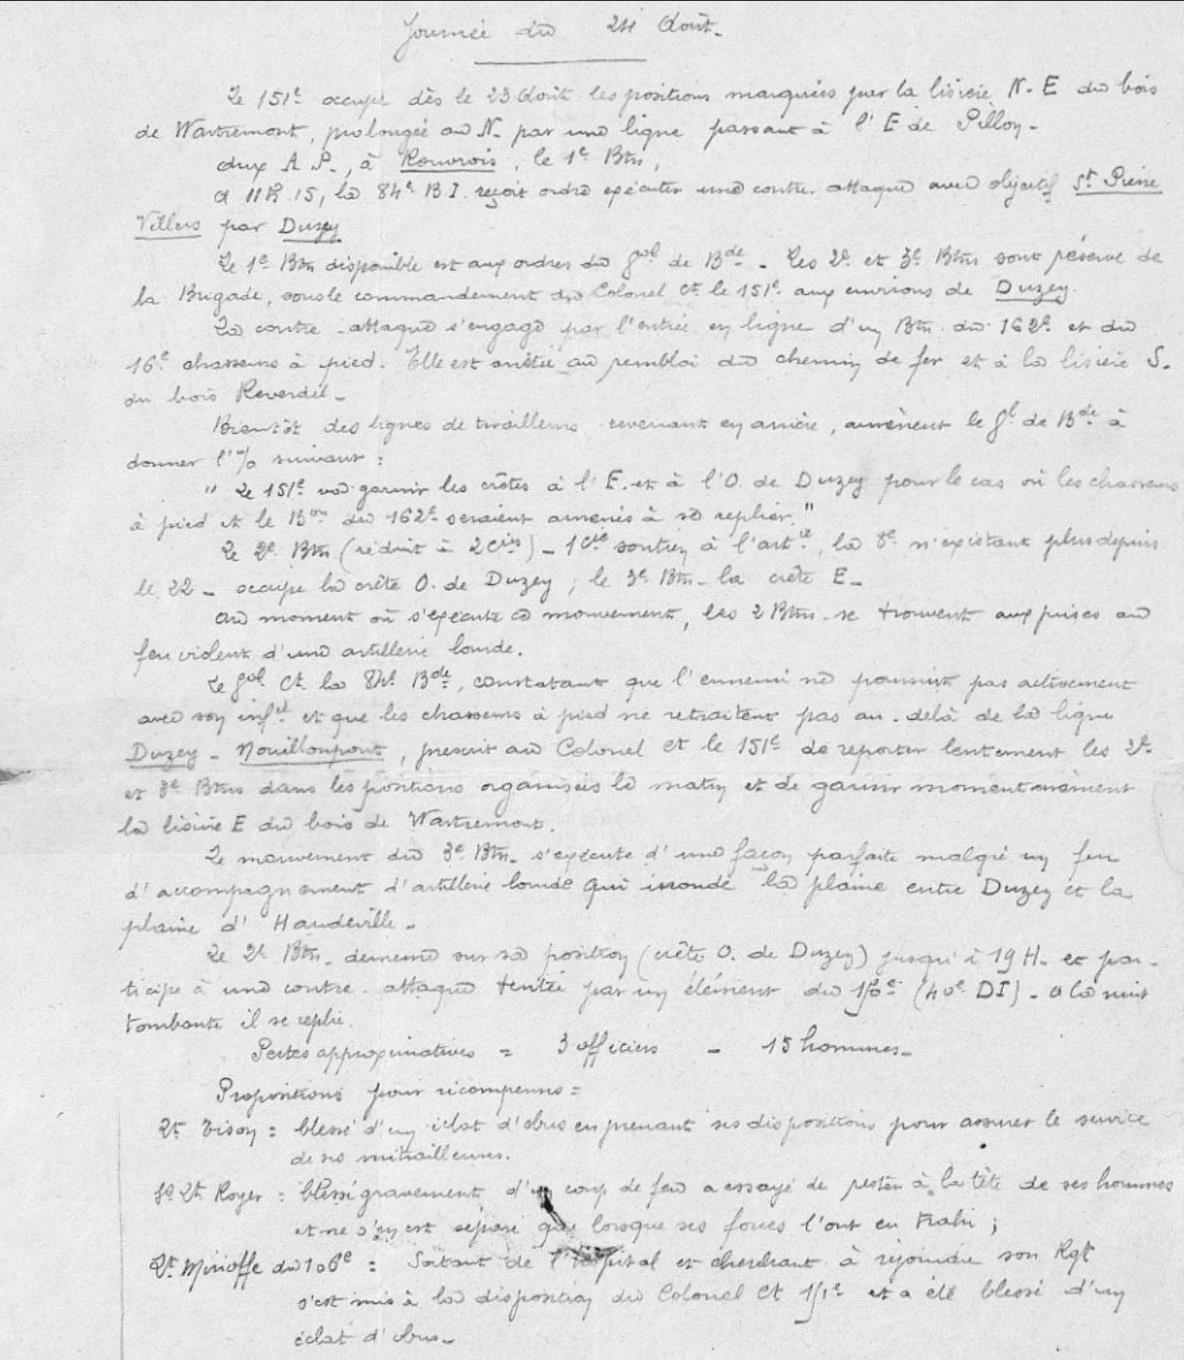 Journée du 24 Août.
Le 151e occupe dès le 23 Août les positions marquées par la lisière N-E du bois
de Wartremont, prolongée au N. par une ligne passant à l'E de Pillon-
aux A P., à Rouvrois, le 1e Btn,
à 11h 15, la 84e B.I. reçoit ordre exécuter une contre-attaque avec objectif St Pierre
Villers par Duzey
Le 1e Btn disponible est aux ordres du gal de Bde. Les 2e et 3e Btns sont réserve de
la Brigade, sous le commandement du Colonel Ct le 151e aux environs de Duzey.
La contre-attaque s'engage par l'entrée en ligne d'un Btn du 162e et du
16e chasseurs à pied. Elle est arrêtée au remblai du chemin de fer et à la lisière S.
du bois Reverdel-
Bientôt des lignes de tirailleurs revenant en arrière, amènent le gl de Bde à
donner l'% suivant :
" Le 151e va garnir les crêtes à l'E. et à l'O. de Duzey pour le cas où les chasseurs
à pied et le Bon du 162e seraient amenés à se replier."
Le 2e Btn (réduit à 2 cies) - 1 Cie soutien à l'artie, la 8e n'existant plus depuis
le 22 - occupe la crête O. de Duzey ; le 3e Btn la crête E-
Au moment où s'exécute ce mouvement, les 2 Btns se trouvent aux prises au
feu violent d'une artillerie lourde.
Le gal Ct la 84e Bde, constatant que l'ennemi ne poursuit pas activement
avec son infie et que les chasseurs à pied ne retraitent pas au-delà de la ligne
Duzey - Nouillonpont, prescrit au Colonel Ct le 151e de reporter lentement les 2e
et 3e Btns dans les positions organisées le matin et de garnir momentanément
la lisière E du bois de Wartremont.
Le mouvement du 3e Btn. s'exécute d'une façon parfaite malgré un feu
d'accompagnement d'artillerie lourde qui inonde la plaine entre Duzey et la
plaine d'Haudeville-
Le 2e Btn. demeure sur sa position (crête O. de Duzey) jusqu'à 19 H. et par-
ticipe à une contre-attaque tentée par un élément du 150e (40e DI) - A la nuit
tombante il se replie.
Pertes approximatives = 3 officiers - 15 hommes-
Propositions pour récompenses =
Lt Tison = blessé d'un éclat d'obus en prenant ses dispositions pour assurer le service
de ses mitrailleuses.
So Lt Royer : blessé gravement d'un coup de feu a essayé de rester à la tête de ses hommes
et ne s'en est séparé que lorsque ses forces l'ont eu trahi ;
Lt Minoffe du 106e : Sortant de l'hôpital et cherchant à rejoindre son Rgt
s'est mis à la disposition du Colonel Ct 151e et a été blessé d'un
éclat d'obus-